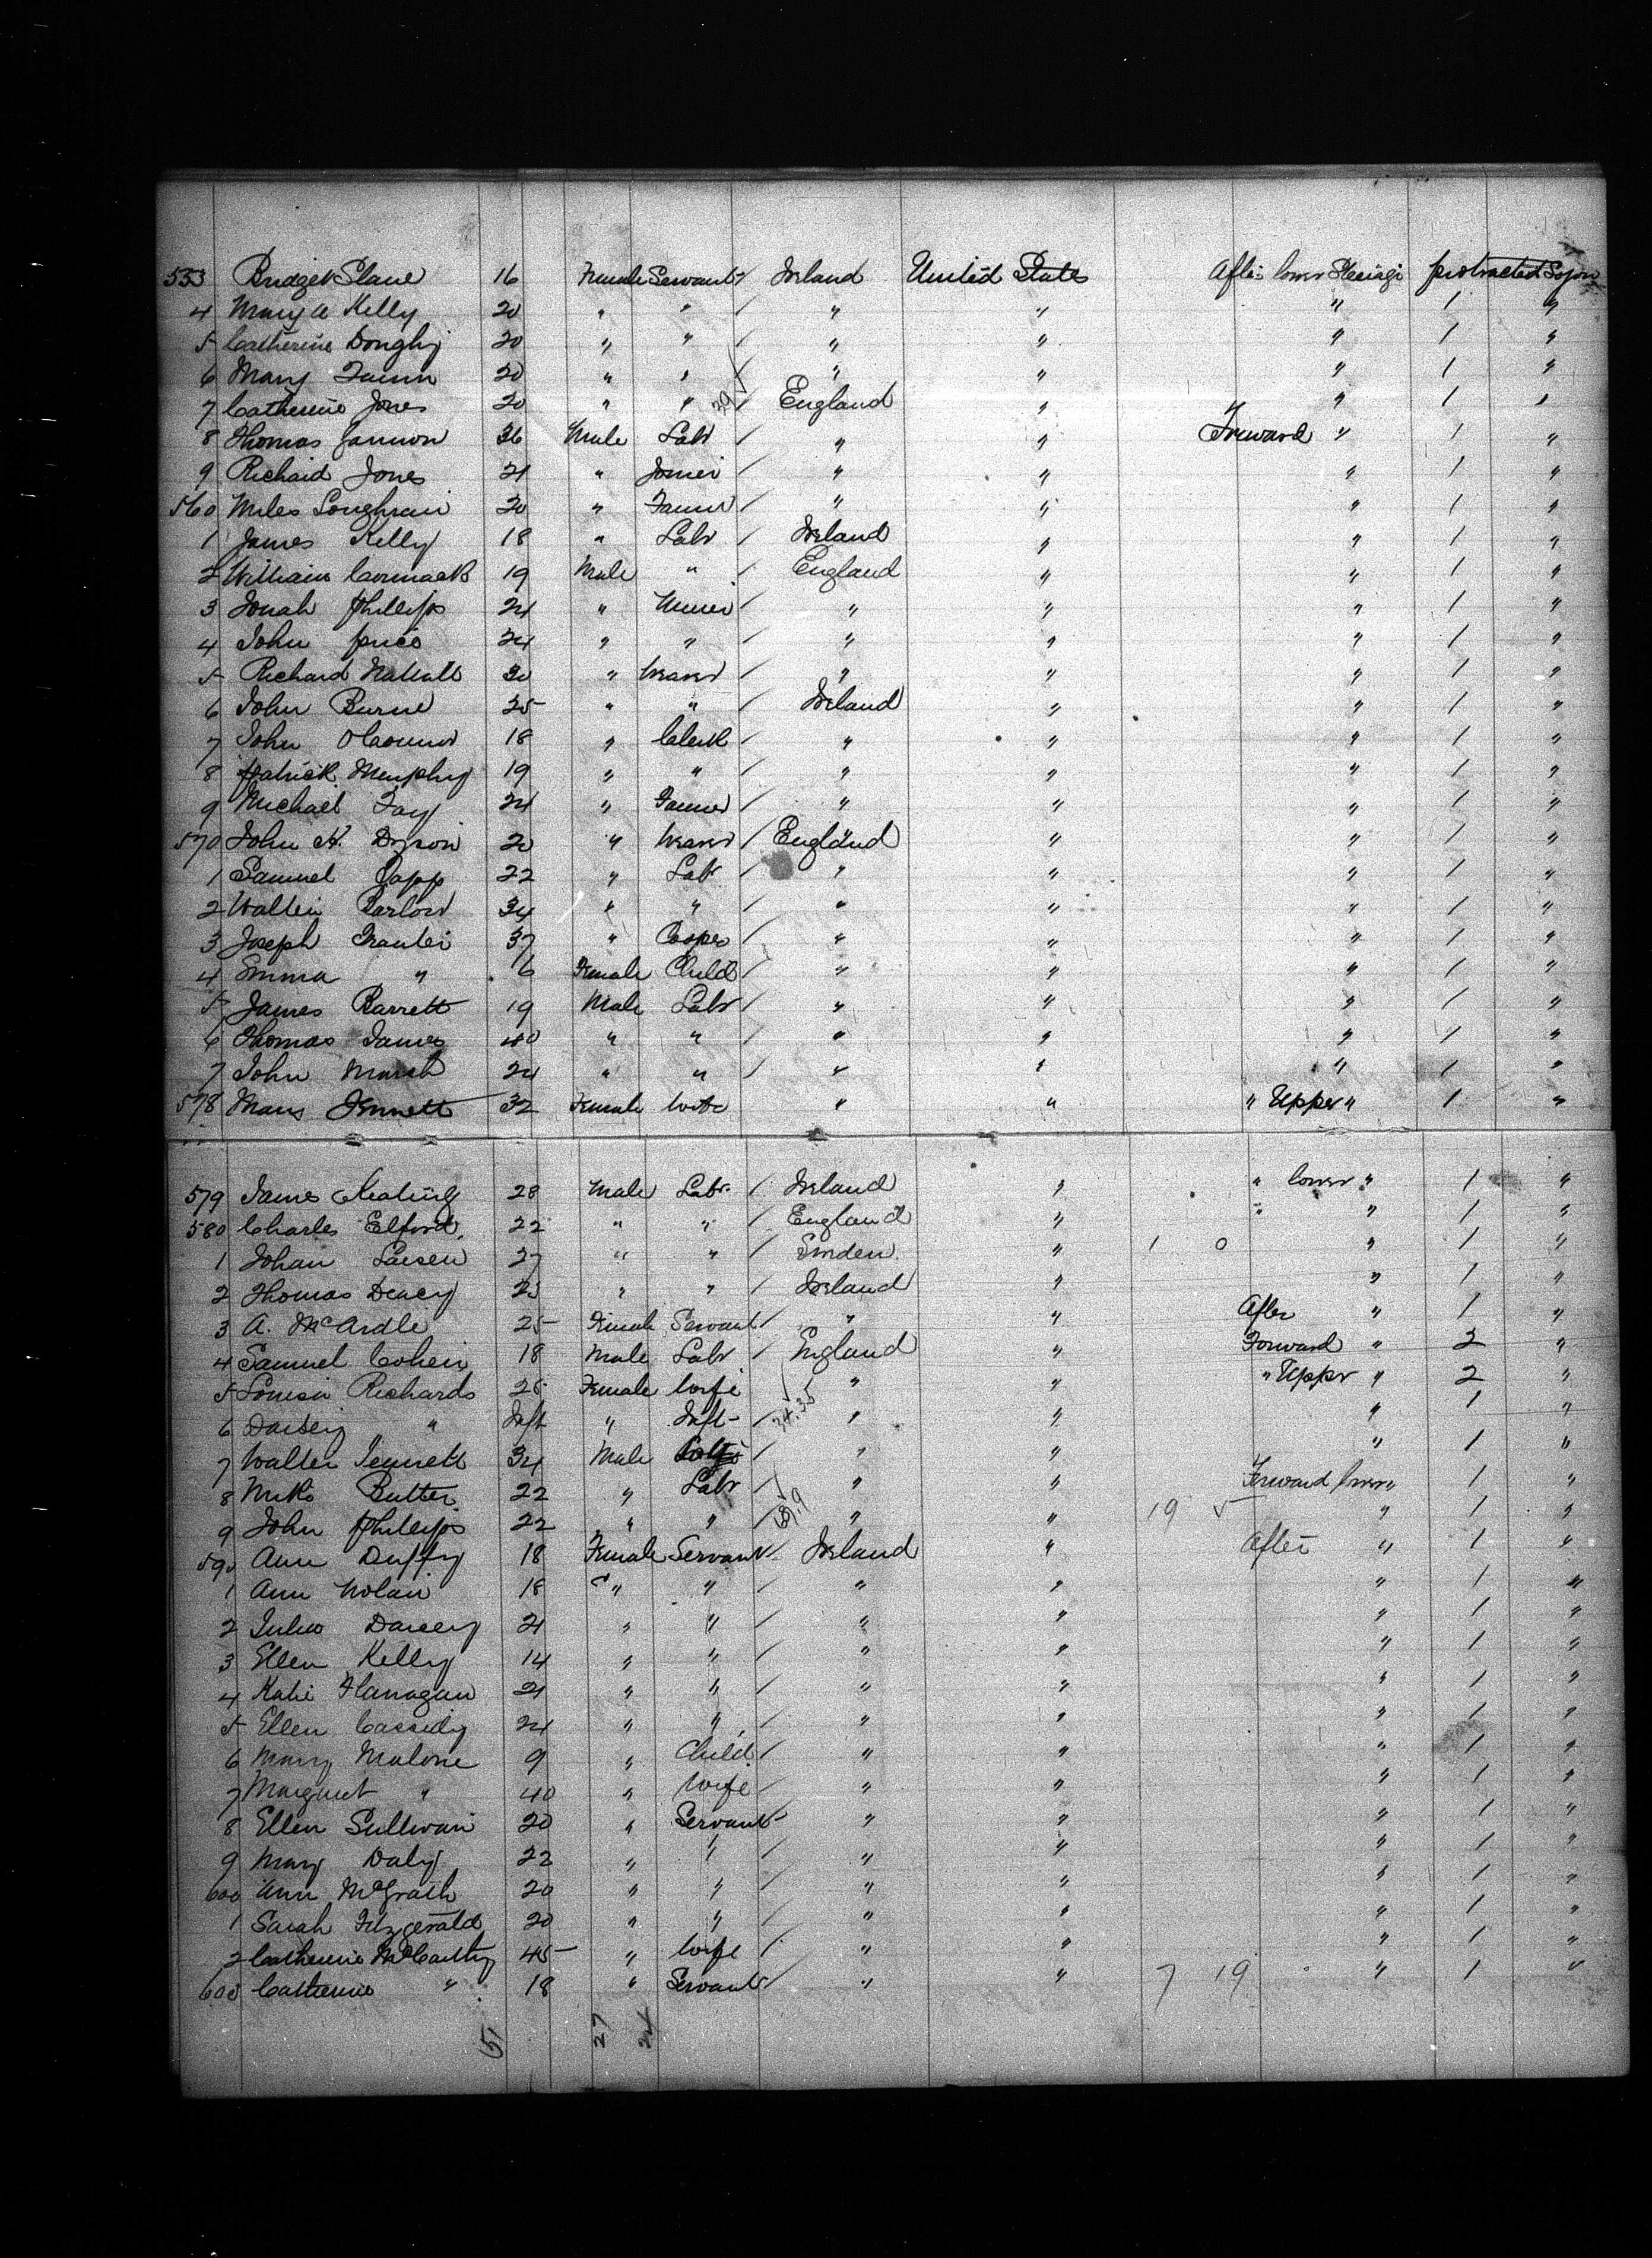 553 Bridget Slane 16 Female Servant / Ireland United States After lower Steerage protracted Sojou
4 Mary A Kelly 20 " " / " " " 1 "
5 Catherine Donghy 20 " " / " " " 1 "
6 Mary Quinn 20 " " / " " " 1 "
7 Catherine Jones 20 " " 29 / England " " 1 "
8 Thomas Gannon 36 Male Labr / " " Forward " 1 "
9 Richard Jones 21 " Joiner / " " " 1 "
560 Miles Loughran 20 " Farmer / " " " 1 "
1 James Kelly 18 " Labr / Ireland " " 1 "
2 William Cormack 19 Male " / England " " 1 "
3 Jonah Phillips 24 " Miner / " " " 1 "
4 John Price 24 " " / " " " 1 "
5 Richard Nattall 30 " Weaver / " " " 1 "
6 John Burne 25 " " / Ireland " " 1 "
7 John OConnor 18 " Clerk / " " " 1 "
8 Patrick Murphy 19 " " / " " " 1 "
9 Michael Fay 24 " Farmer / " " " 1 "
570 John H. Dyson 20 " Weaver / England " " 1 "
1 Samuel 22 " Labr / " " " 1 "
2 Walter Barlow 34 " " / " " " 1 "
3 Joseph 37 " Cooper / " " " 1 "
4 Emma " 6 Female Child / " " " 1 "
5 James Barrett 19 Male Labr / " " " 1 "
6 Thomas James 40 " " / " " " 1 "
7 John Marsh 24 " " / " " " 1 "
578 Mary Jennett 32 Female Wife " " " Upper " 1 "
579 James Keating 28 Male Labr. / Ireland " " lower " 1 "
580 Charles Elford 22 " " / England " " " 1 "
1 Johan Larsen 27 " " / " 1 0 " 1 "
2 Thomas 23 " " / Ireland " " 1 "
3 A. McArdle 25 Female Servant / " " After " 1 "
4 Samuel Cohen 18 Male Labr / England " Forward " 2 "
5 Louisa Richards 25 Female Wife / " " " Upper " 2 "
6 " Inft " Inft / 34.35 " " " 1 "
7 Walter Jennett 34 Male / " " " 1 "
8 Butter 22 " Labr / " " Forward lower 1 "
9 John Phillips 22 " " " " 19 5 " 1 "
590 Ann Duffy 18 Female Servant / Ireland " After " 1 "
1 Ann Nolan 18 " " / " " " 1 "
2 Darcey 21 " " / " " " 1 "
3 Ellen Kelly 14 " " / " " " 1 "
4 Katie Flanagan 21 " " / " " " 1 "
5 Ellen Cassidy 24 " " / " " " 1 "
6 Mary Malone 9 " Child / " " " 1 "
7 Margaret " 40 " Wife / " " " 1 "
8 Ellen Sullivan 20 " Servant / " " " 1 "
9 Mary Daly 22 " " " " " 1 "
600 Ann McGrath 20 " " / " " " 1 "
1 Sarah Fitzgerald 20 " " / " " " 1 "
2 Catherine McCarthy 45 " Wife / " " " 1 "
603 Catherine " 18 " Servant / " " 7 19 " 1 "
51 27 24